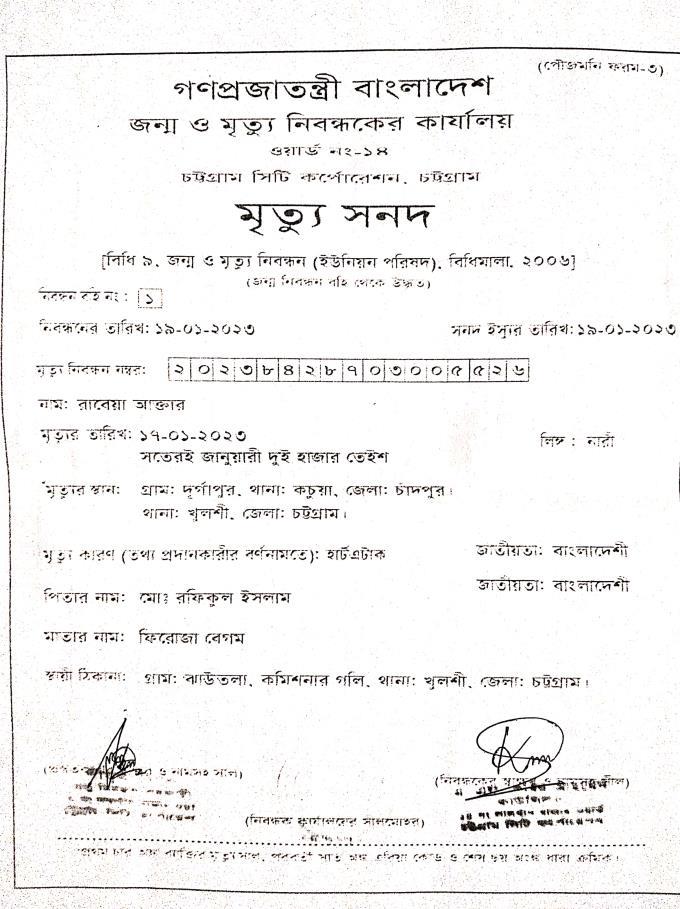 (পৌজমনি ফরম-৩)
গণপ্রজাতন্ত্রী বাংলাদেশ
জন্ম ও মৃত্যু নিবন্ধকের কার্যালয়
ওয়ার্ড নং-১৪
চট্টগ্রাম সিটি কর্পোরেশন, চট্টগ্রাম
মৃত্যু সনদ
[বিধি ৯, জন্ম ও মৃত্যু নিবন্ধন (ইউনিয়ন পরিষদ), বিধিমালা, ২০০৬]
(জন্ম নিবন্ধন বহি থেকে উদ্ধৃত)
নিবন্ধন বই নং: ১
নিবন্ধনের তারিখ: ১৯-০১-২০২৩ সনদ ইস্যুর তারিখ: ১৯-০১-২০২৩
মৃত্যু নিবন্ধন নম্বর: ২০২৩৮৪২৮৭০৩০০৫৫২৬
নাম: রাবেয়া আক্তার
মৃত্যুর তারিখ: ১৭-০১-২০২৩ লিঙ্গ : নারী
সতেরই জানুয়ারী দুই হাজার তেইশ
মৃত্যুর স্থান: গ্রাম: দূর্গাপুর, থানা: কচুয়া, জেলা: চাঁদপুর।
থানা: খুলশী, জেলা: চট্টগ্রাম।
মৃত্যু কারণ (তথ্য প্রদানকারীর বর্ণনামতে): হার্টএটাক জাতীয়তা: বাংলাদেশী
জাতীয়তা: বাংলাদেশী
পিতার নাম: মোঃ রফিকুল ইসলাম
মাতার নাম: ফিরোজা বেগম
স্থায়ী ঠিকানা: গ্রাম: ঝাউতলা, কমিশনার গলি, থানা: খুলশী, জেলা: চট্টগ্রাম।
ও নামসহ সীল)
(নিবন্ধকের স্বাক্ষর ও নামসহ সীল)
(নিবন্ধক কার্যালয়ের সীলমোহর)
প্রথম চার অঙ্ক ব্যক্তির মৃত্যু সাল, পরবর্তী সাত অঙ্ক এরিয়া কোড ও শেষ ছয় অংক ধারা ক্রমিক।